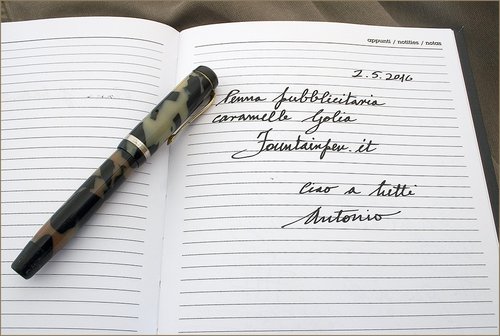 appunti / notities / notas
2.5.2016
Penna pubblicitaria
caramelle Golia
Fountainpen.it
Ciao a tutti
Antonio